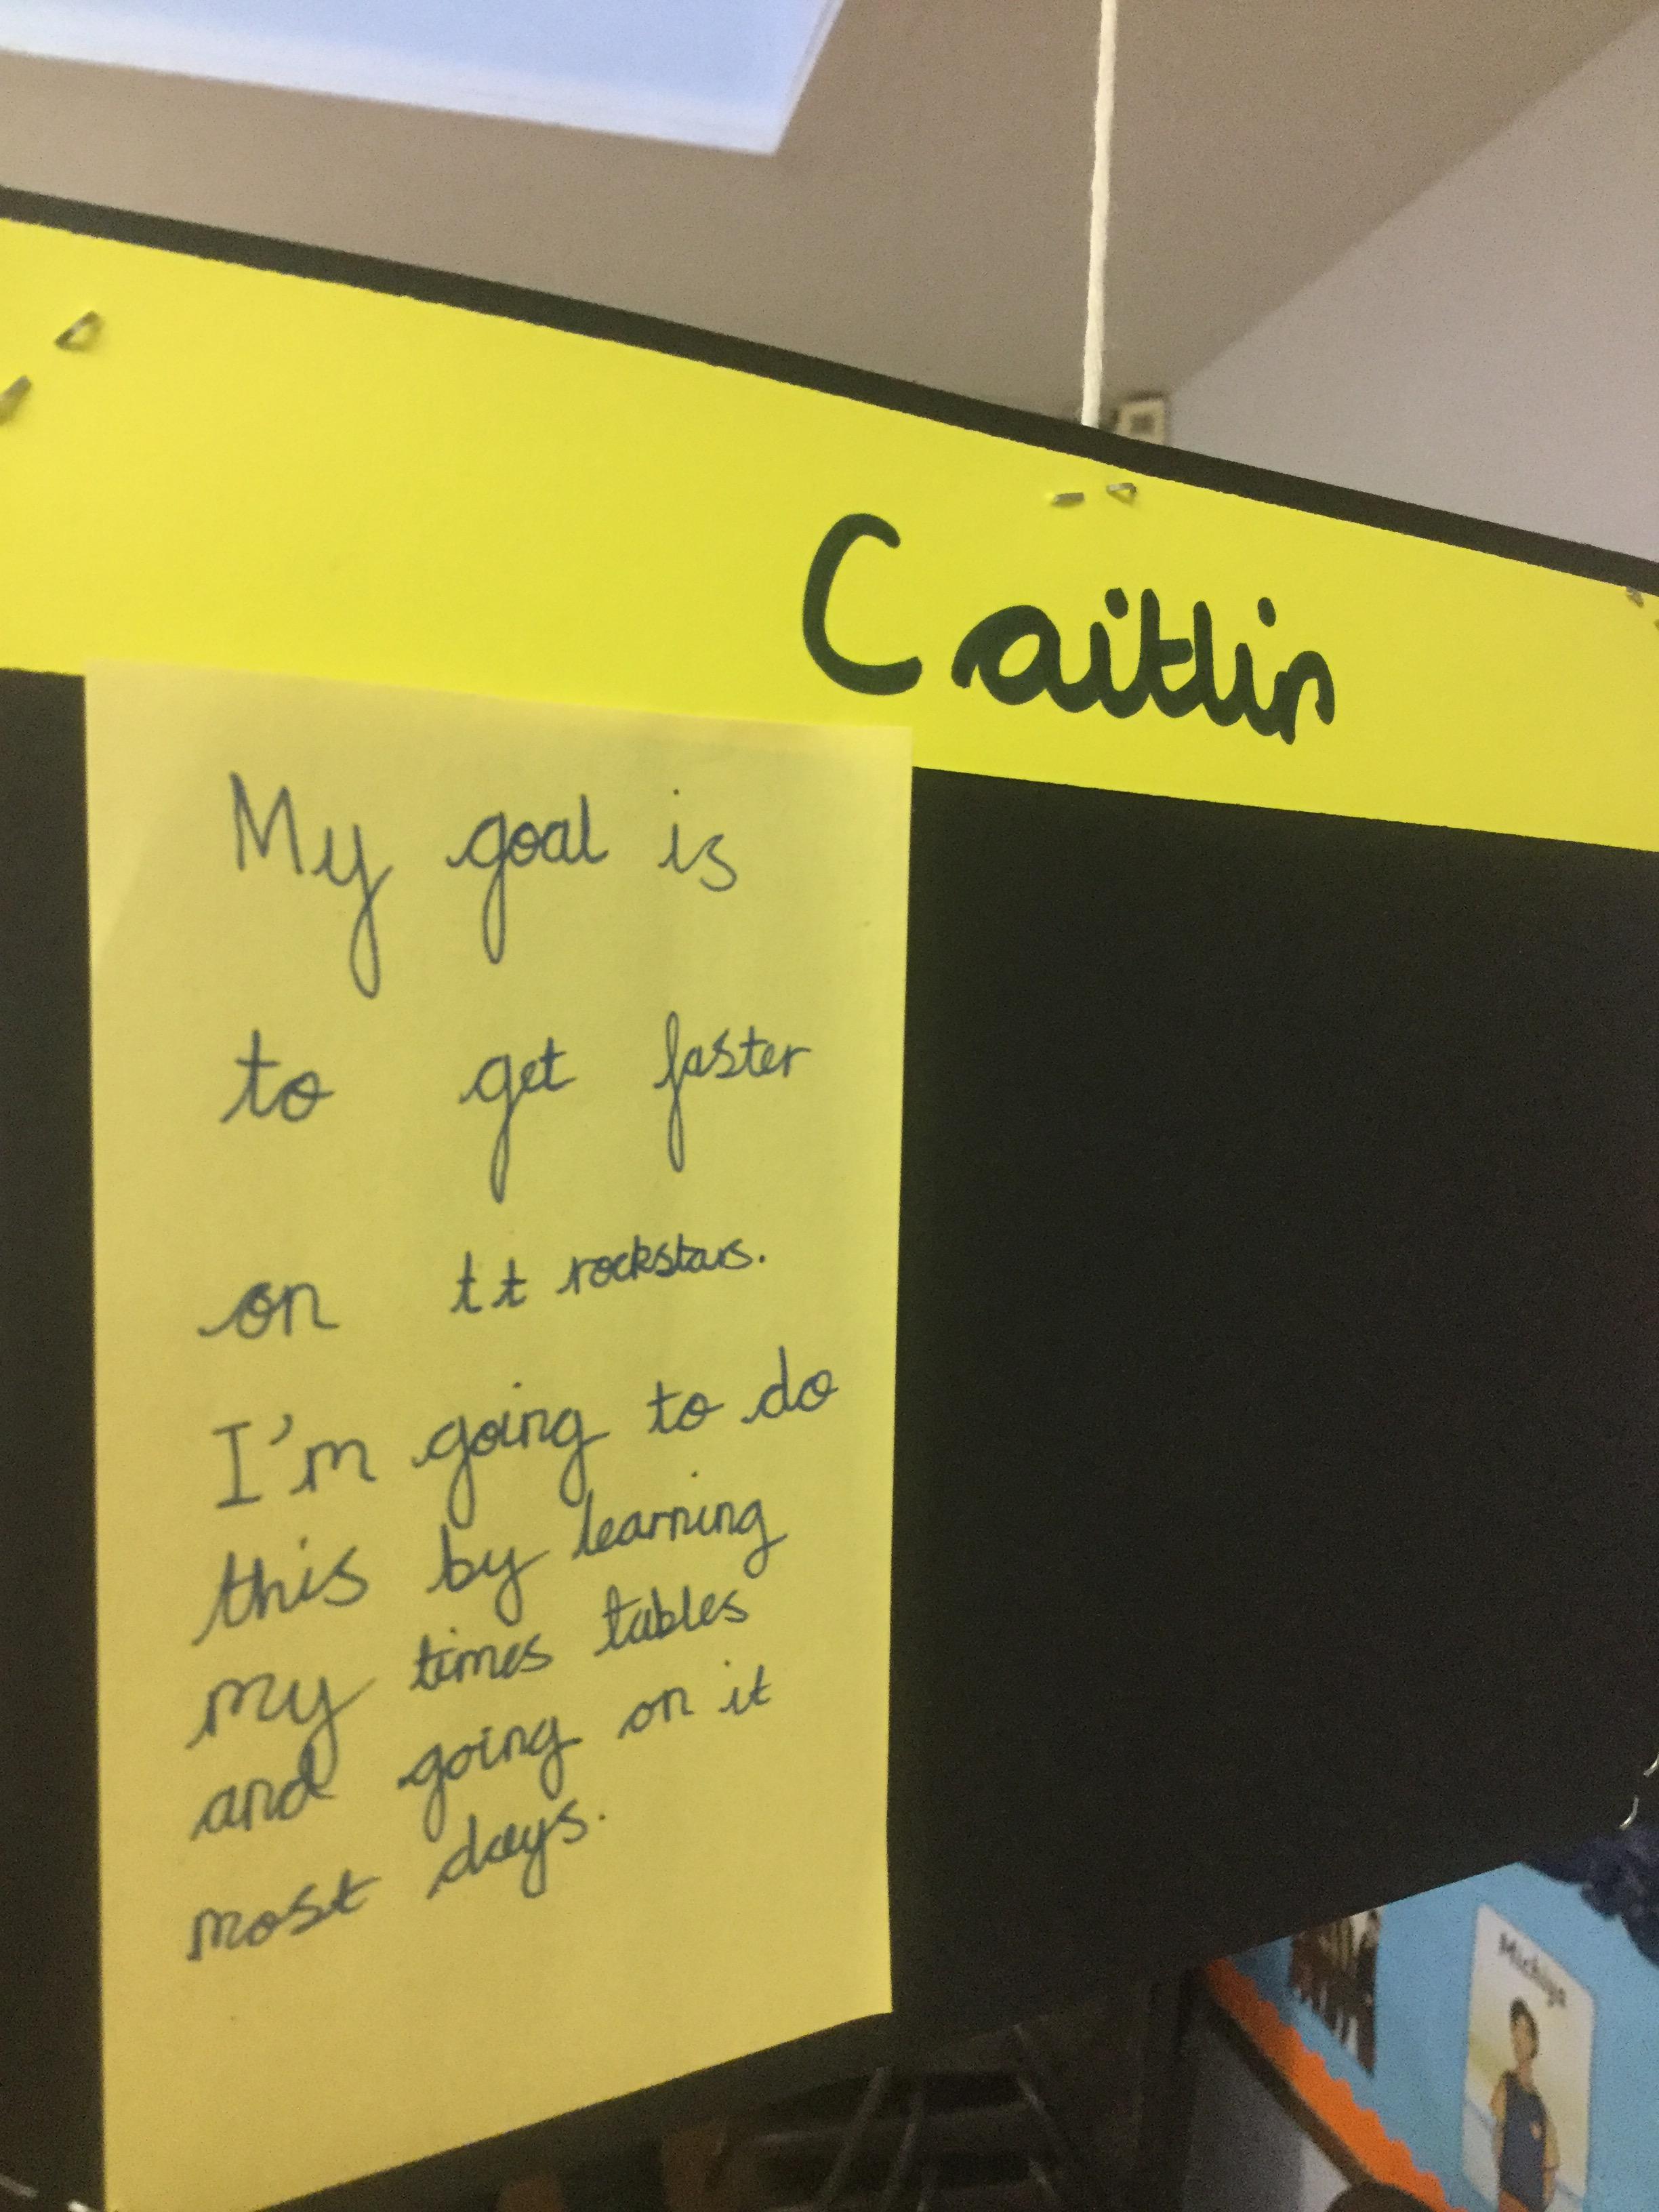 Caitlin
My goal is
to get faster
on tt rockstars.
I'm going to do
this by learning
my times tables
and going on it
most days.
Michiya